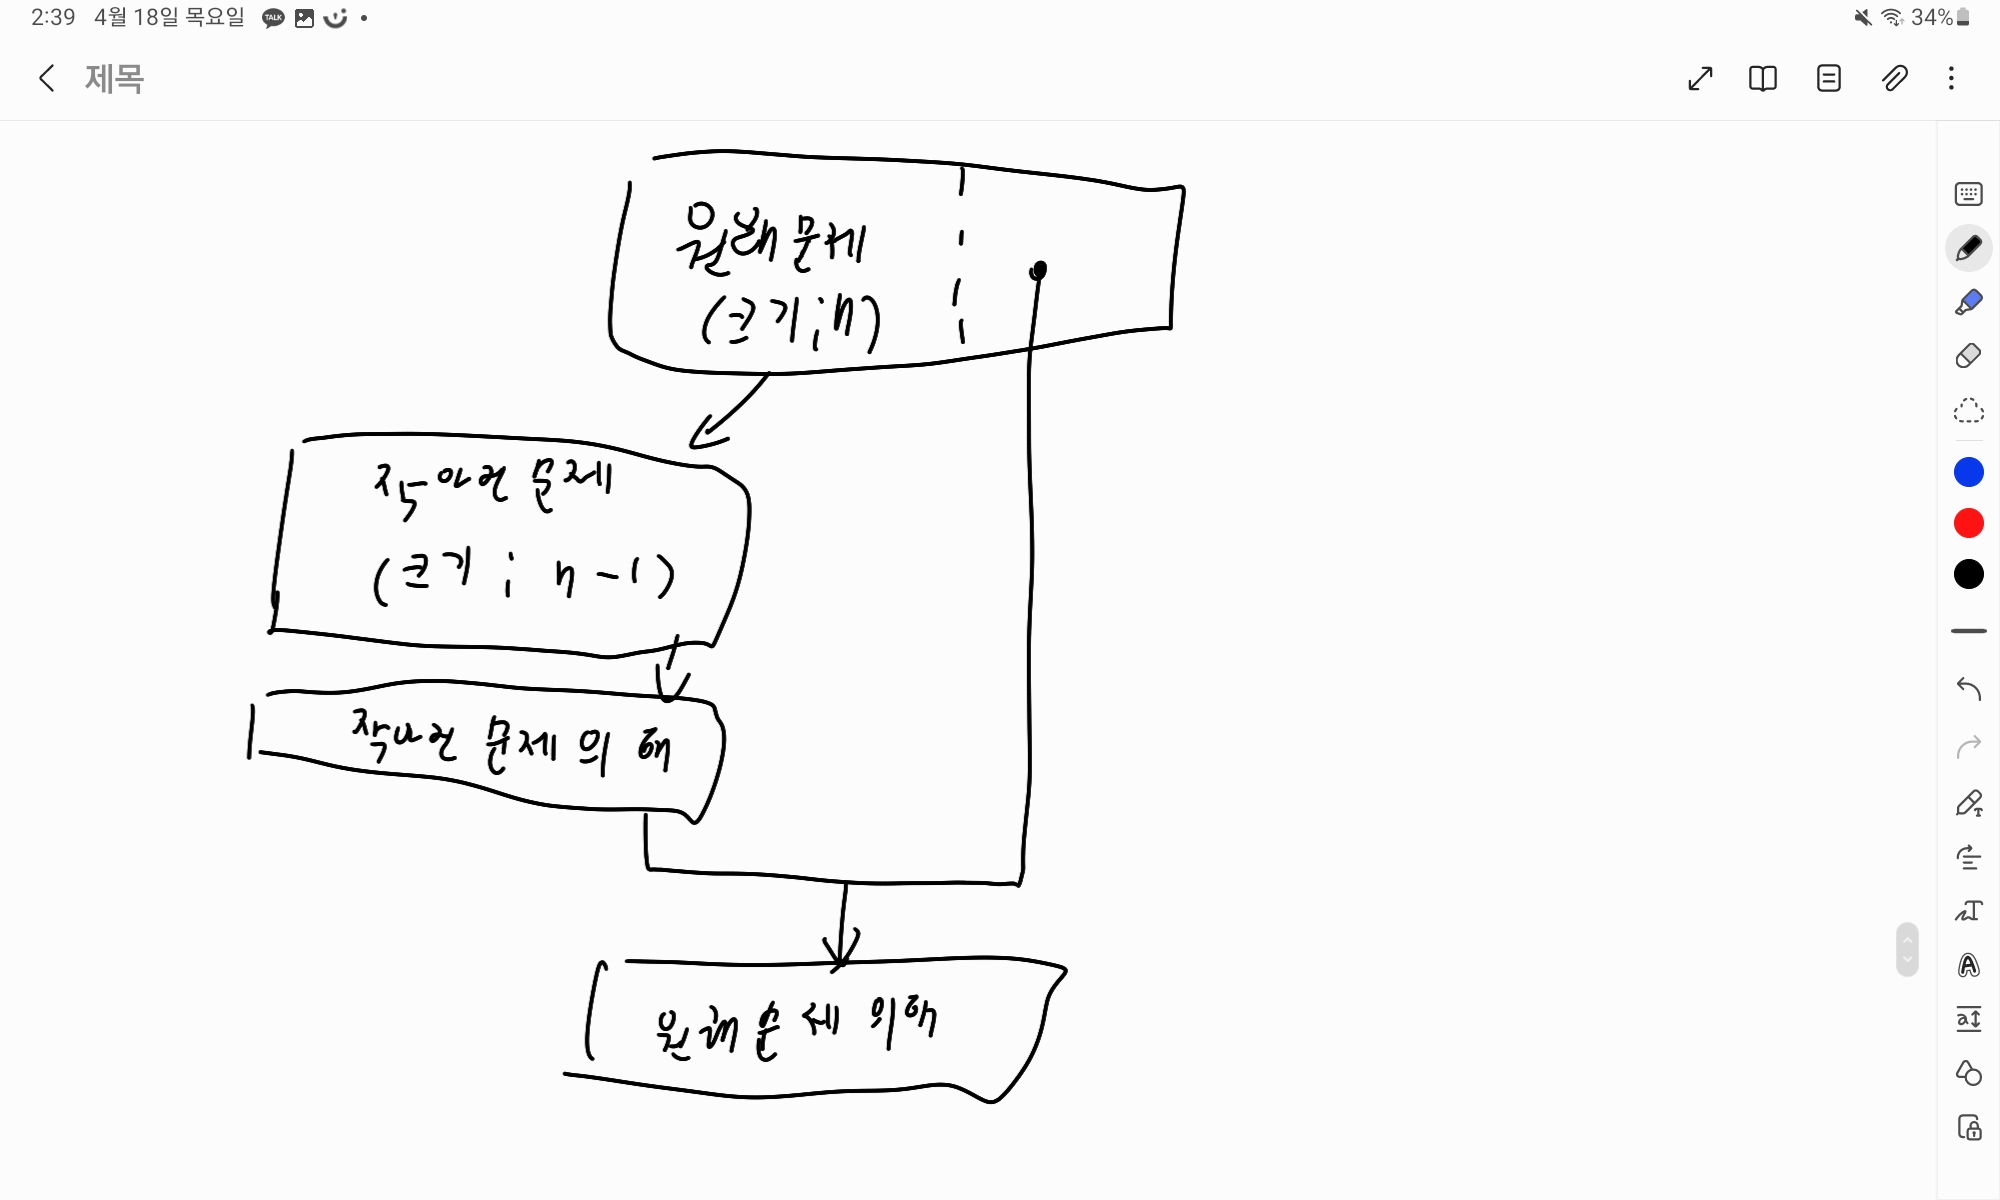 2:39 4월 18일 목요일
TALK
34%
제목
원래 문제
(크기 ; n)
작아진 문제
(크기 ; n-1)
작아진 문제의 해
원래 문제의 해